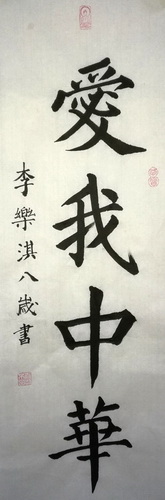 愛我中華
李樂淇八歲書